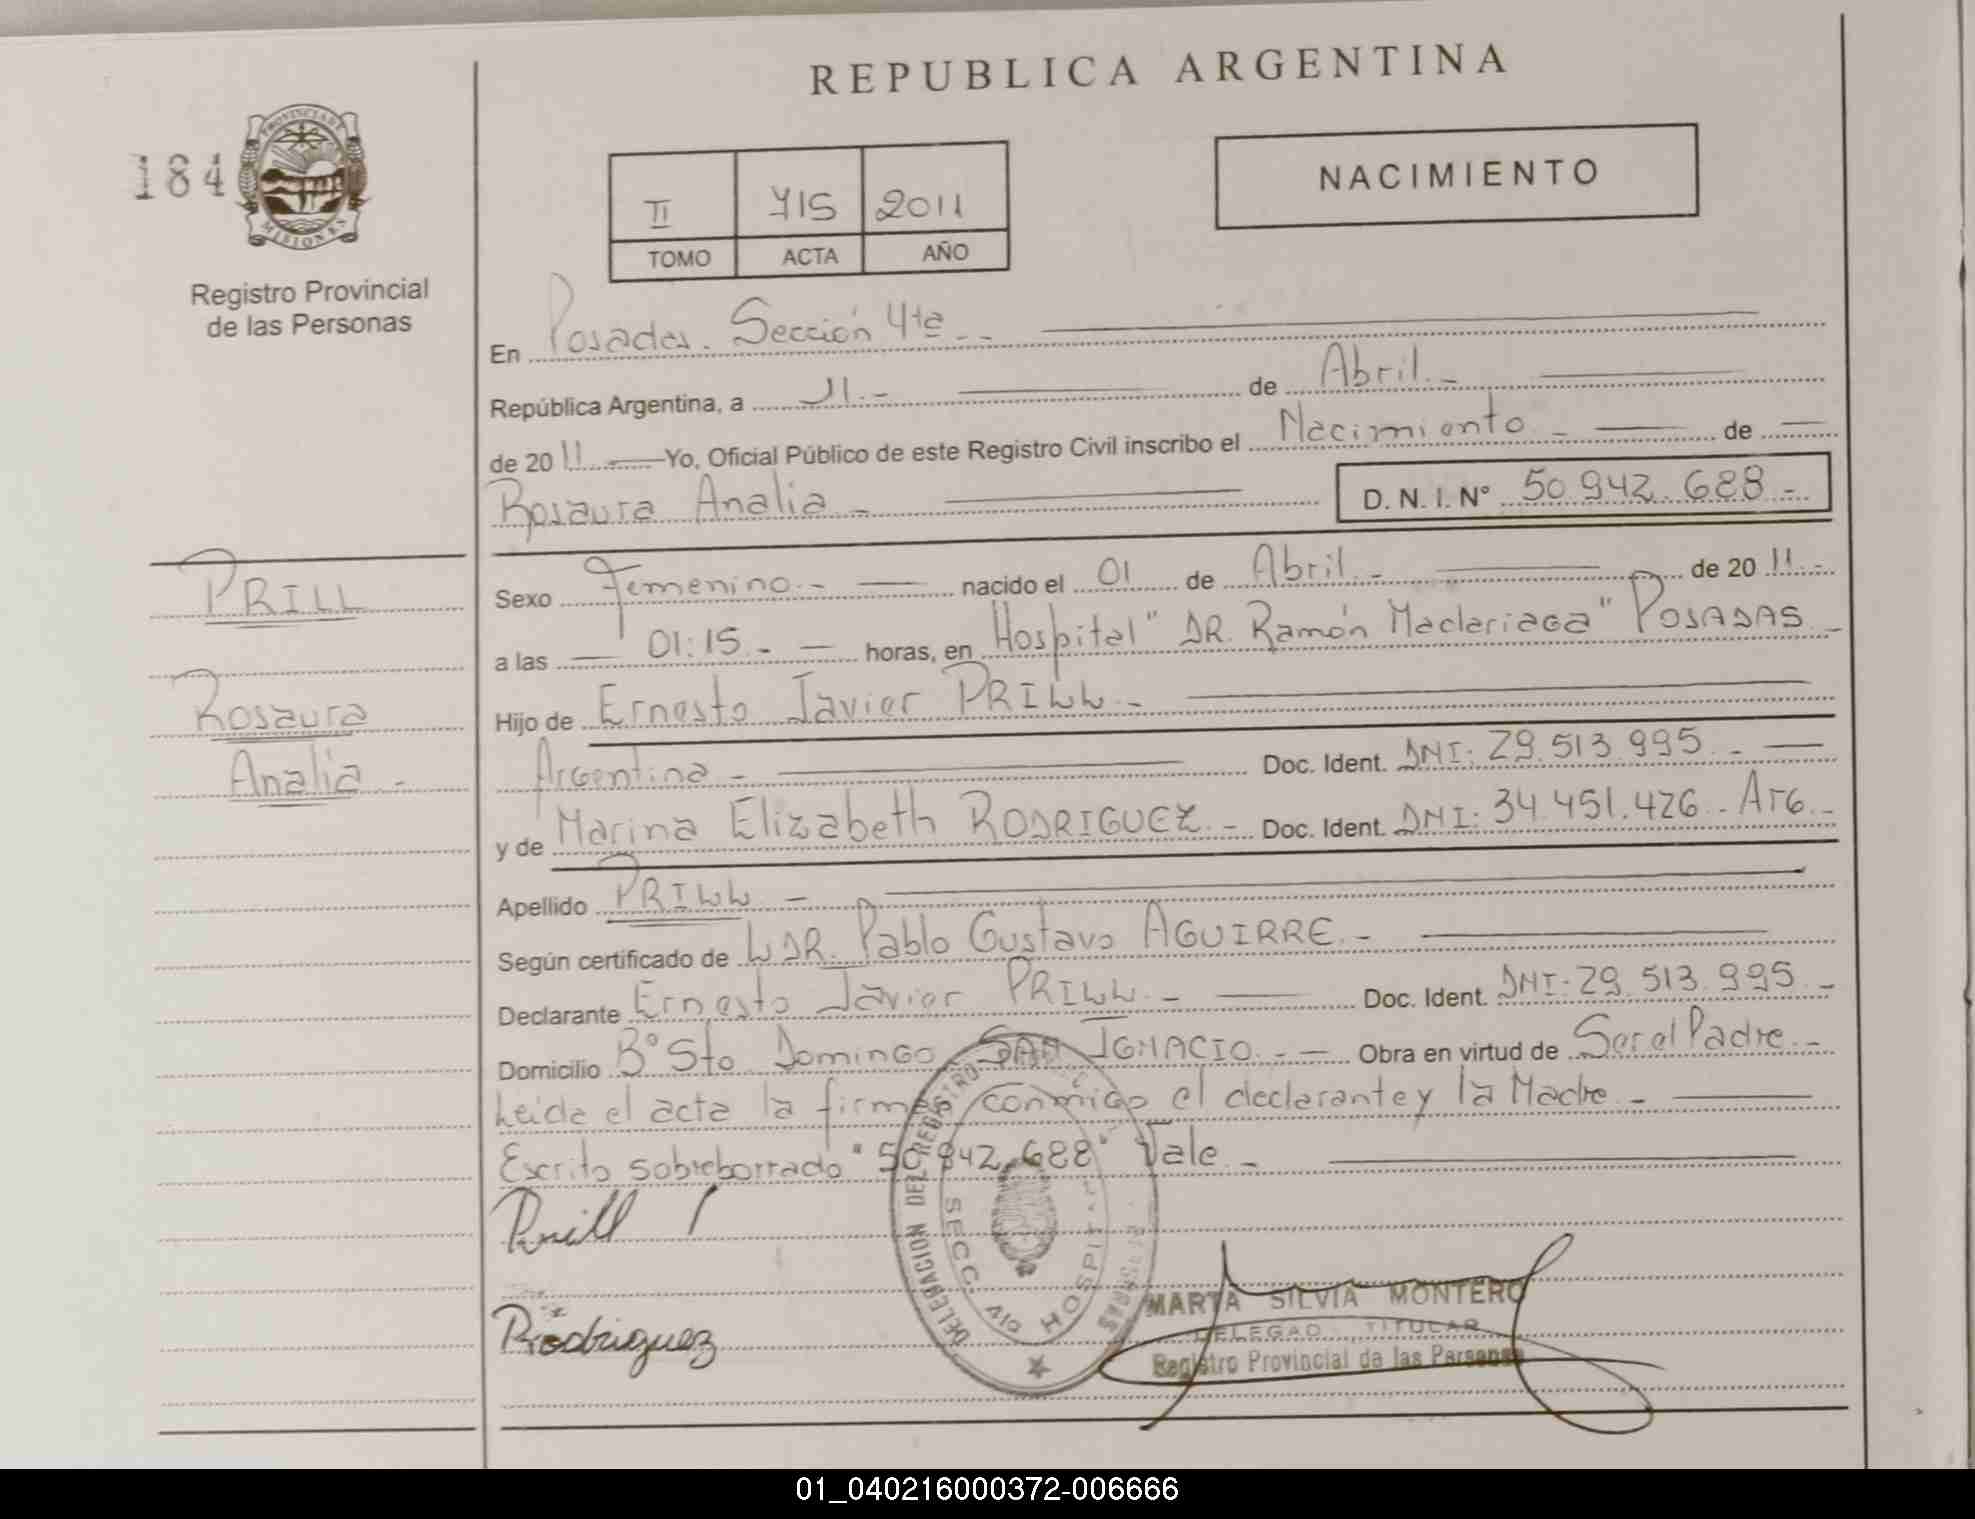 REPUBLICA ARGENTINA
184
PROVINCIA DE
MISIONES
Registro Provincial
de las Personas
II 415 2011
TOMO ACTA AÑO
NACIMIENTO
En Posadas. Sección 4ta.-
República Argentina, a 11.- de Abril.-
de 2011 Yo, Oficial Público de este Registro Civil inscribo el Nacimiento - de
Rosaura Analia - D. N. I. Nº 50.942.688 -
PRILL
Rosaura
Analia -
Sexo Femenino.- nacido el 01 de Abril.- de 2011.-
a las 01:15.- horas, en Hospital "DR. Ramón Madariaga" POSADAS -
Hijo de Ernesto Javier PRILL.-
Argentina - Doc. Ident. DNI: 29.513.995.-
y de Marina Elizabeth RODRIGUEZ.- Doc. Ident. DNI: 34.451.426.- Arg.-
Apellido PRILL -
Según certificado de DR. Pablo Gustavo AGUIRRE.-
Declarante Ernesto Javier PRILL.- Doc. Ident. DNI: 29.513.995.-
Domicilio Bº Sto Domingo SAN IGNACIO.- Obra en virtud de Ser el Padre.-
Leida el acta la firman conmigo el declarante y la Madre.-
Escrito sobreborrado "50.942.688" Vale.-
Prill
Rodriguez
DELEGACION DEL REGISTRO
SECC. 4ta HOSPITAL
MARTA SILVIA MONTERO
DELEGADO TITULAR
Registro Provincial de las Personas
01_040216000372-006666